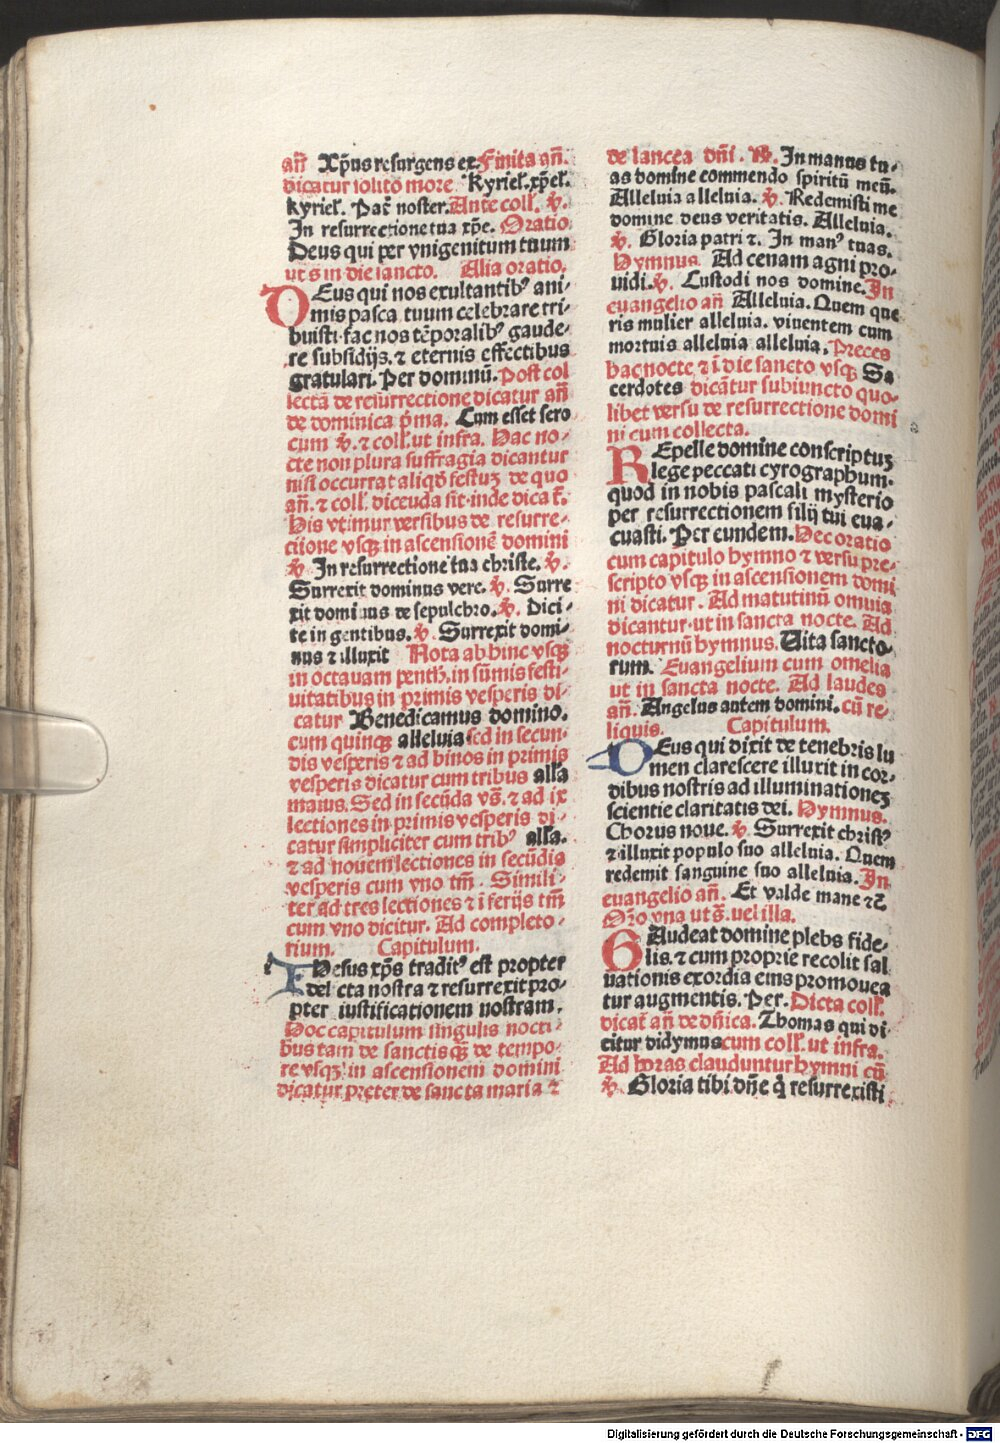 añ Xp̄us resurgens ex. Finita añ.
dicatur solito more Kyriel̄. xp̄el̄.
kyriel̄. Pat̄ noster. Ante coll̄. ℣.
In resurrectione tua xp̄e. Oratio
Deus qui per vnigenitum tuum
ut s̄ in die sancto. Alia oratio.
DEus qui nos exultantibꝰ ani-
mis pasca tuum celebrare tri-
buisti. fac nos tēporalibꝰ gaude-
re subsidijs. ⁊ eternis effectibus
gratulari. Per dominū. Post col
lectā de resurrectione dicatur añ
de dominica p̄ma. Cum esset sero
cum ℣. ⁊ coll̄. ut infra. Hac no-
cte non plura suffragia dicantur
nisi occurrat aliqd̄ festuꝫ de quo
añ. ⁊ coll̄. dicenda sit. inde dica t̄.
His vtimur versibus de resurre-
ctione vsqꝫ in ascensionē domini
℣. In resurrectione tua christe. ℣.
Surrexit dominus vere. ℣. Surre
xit dominus de sepulchro. ℣. Dici-
te in gentibus. ℣. Surrexit domi-
nus ⁊ illuxit Nota ab hinc vsqꝫ
in octauam penth̄. in sūmis festi-
uitatibus in primis vesperis di-
catur Benedicamus domino.
cum quinqꝫ alleluia sed in secun-
dis vesperis ⁊ ad binos in primis
vesperis dicatur cum tribus all̄a
maius. Sed in secūda vs̄. ⁊ ad ix
lectiones in primis vesperis di-
catur simpliciter cum tribꝰ all̄a.
⁊ ad nouem lectiones in secūdis
vesperis cum vno tm̄. Simili-
ter ad tres lectiones ⁊ ī ferijs tm̄
cum vno dicitur. Ad completo-
rium. Capitulum.
IHesus xp̄s traditꝰ est propter
delicta nostra ⁊ resurrexit pro-
pter iustificationem nostram.
Hoc capitulum singulis nocti-
bus tam de sanctis qꝫ de tempo-
re vsqꝫ in ascensionem domini
dicatur preter de sancta maria ⁊
de lancea dn̄i. ℟. In manus tu-
as domine commendo spiritū meū.
Alleluia alleluia. ℣. Redemisti me
domine deus veritatis. Alleluia.
℣. Gloria patri ⁊. In manꝰ tuas.
Hymnus. Ad cenam agni pro-
uidi. ℣. Custodi nos domine. In
euangelio añ Alleluia. Quem que
ris mulier alleluia. viuentem cum
mortuis alleluia alleluia. Preces
hac nocte ⁊ ī die sancto vsqꝫ Sa
cerdotes dicātur subiuncto quo-
libet versu de resurrectione domi
ni cum collecta.
REpelle domine conscriptuꝫ
lege peccati cyrographum.
quod in nobis pascali mysterio
per resurrectionem filij tui eua-
cuasti. Per eundem. Hec oratio
cum capitulo hymno ⁊ versu pre-
scripto vsqꝫ in ascensionem domi
ni dicatur. Ad matutinū omnia
dicantur ut in sancta nocte. Ad
nocturnū hymnus. Vita sancto-
rum. Euangelium cum omelia
ut in sancta nocte. Ad laudes
añ. Angelus autem domini. cū re-
liquis. Capitulum.
DEus qui dixit de tenebris lu
men clarescere illuxit in cor-
dibus nostris ad illuminationeꝫ
scientie claritatis dei. Hymnus.
Chorus noue. ℣. Surrexit christꝰ
⁊ illuxit populo suo alleluia. Quem
redemit sanguine suo alleluia. In
euangelio añ. Et valde mane ⁊c̄
Or̄o vna ut s̄. uel illa.
GAudeat domine plebs fide-
lis. ⁊ cum proprie recolit sal
uationis exordia eius promouea
tur augmentis. Per. Dicta coll̄.
dicat̄ añ de dn̄ica. Thomas qui di
citur didymus cum coll̄. ut infra.
Ad horas clauduntur hymni cū
℣. Gloria tibi dn̄e q̄ resurrexisti
Digitalisierung gefördert durch die Deutsche Forschungsgemeinschaft - DFG